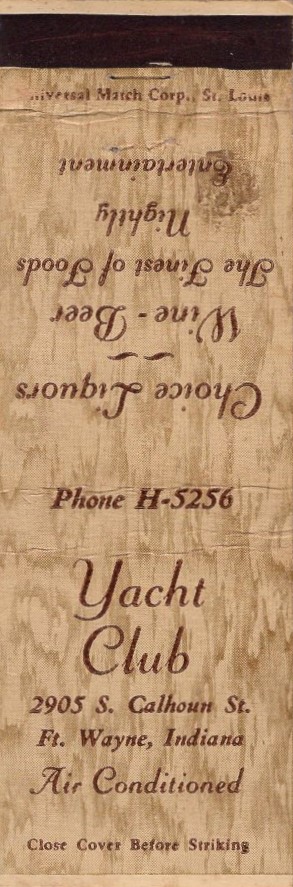 Universal Match Corp., St. Louis
Choice Liquors
Wine - Beer
The Finest of Foods
Nightly
Entertainment
Phone H-5256
Yacht
Club
2905 S. Calhoun St.
Ft. Wayne, Indiana
Air Conditioned
Close Cover Before Striking